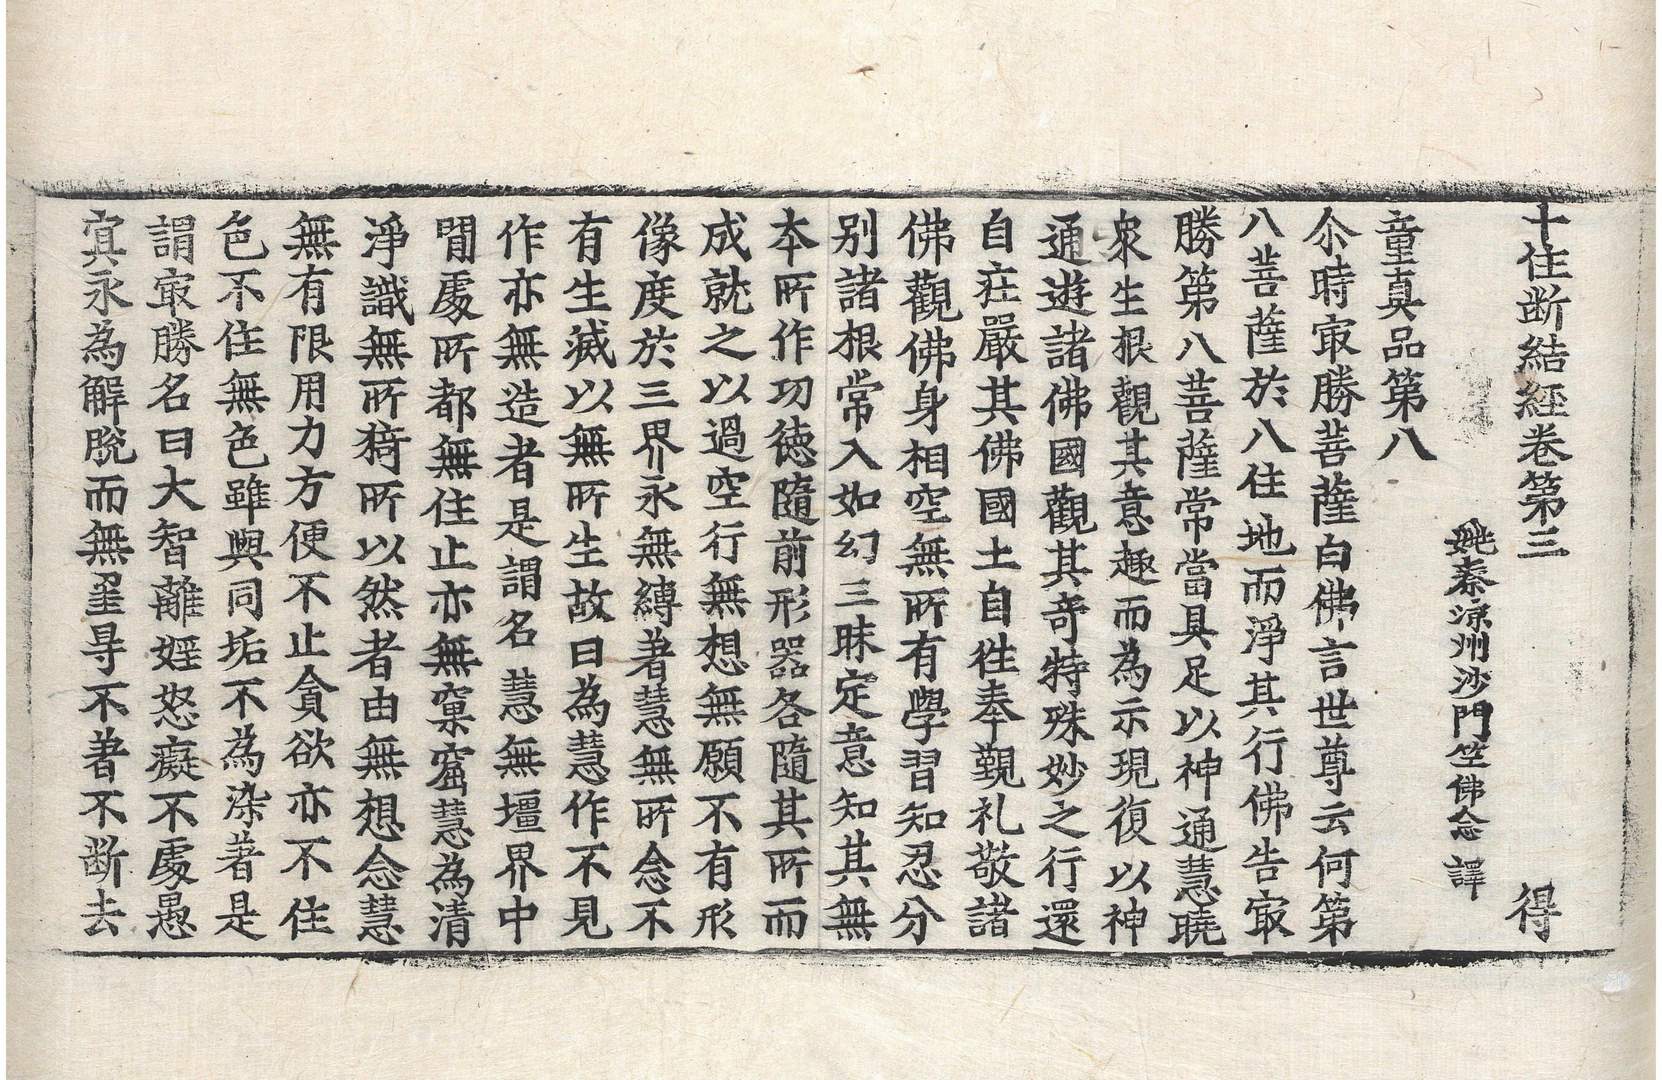 十住断結經卷第三 得
姚秦涼州沙門竺佛念譯
童真品第八
尒時㝡勝菩薩白佛言世尊云何第
八菩薩於八住地而淨其行佛告㝡
勝第八菩薩常當具足以神通慧曉
衆生根觀其意趣而為示現復以神
通遊諸佛國觀其奇特殊妙之行還
自莊嚴其佛國土自往奉覲礼敬諸
佛觀佛身相空無所有學習知忍分
別諸根常入如幻三昧定意知其無
本所作功德隨前形器各隨其所而
成就之以過空行無想無願不有形
像度於三界永無縛著慧無所念不
有生滅以無所生故曰為慧作不見
作亦無造者是謂名慧無壃界中
閒處所都無住止亦無窠窟慧為清
淨識無所猗所以然者由無想念慧
無有限用力方便不止貪欲亦不住
色不住無色雖與同垢不為染著是
謂㝡勝名曰大智離婬怒癡不處愚
冥永為解脫而無罣㝵不著不断去